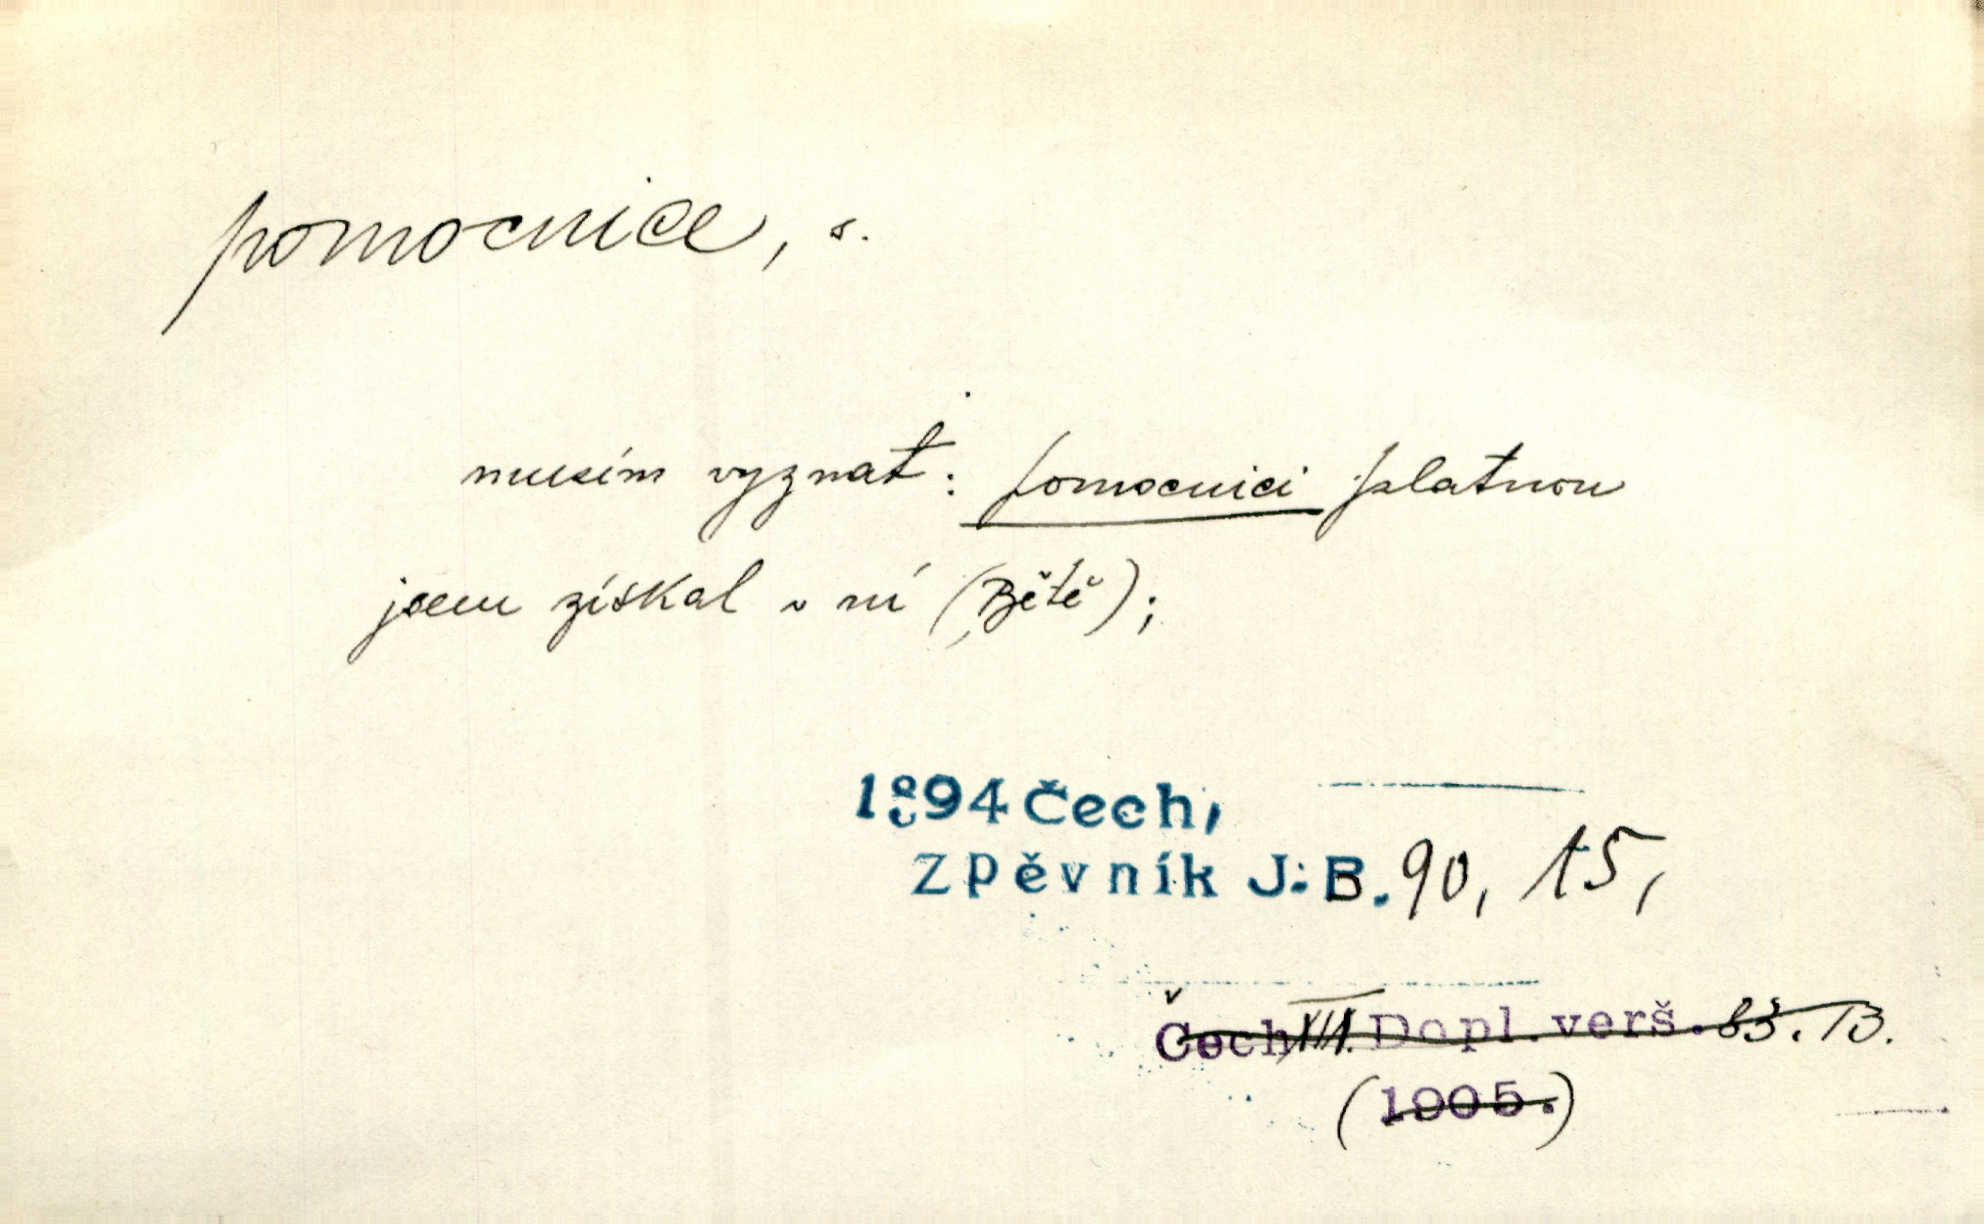 pomocnice, s.
musím vyznat: pomocnici platnou
jsem získal v ní (Bětě);
1894 Čech,
Zpěvník J. B. 90, 15,
Čech XIII. Dopl. verš. 83. 13.
(1905.)